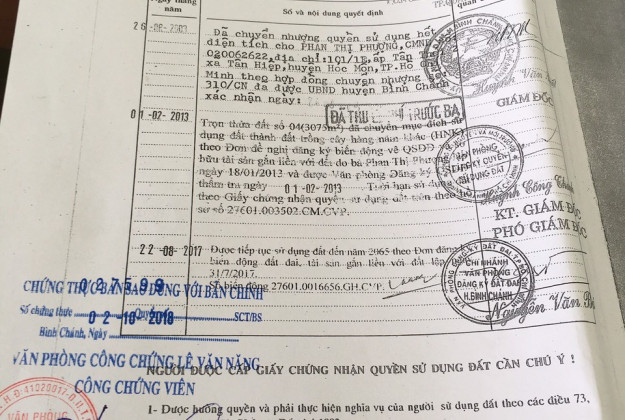 Ngày tháng năm
Số và nội dung quyết định
26-08-2003
Đã chuyển nhượng quyền sử dụng hết
diện tích cho PHAN THỊ PHƯỢNG, CMND
020062622, địa chỉ: 191/1B, ấp Tân
xã Tân Hiệp, huyện Hóc Môn, TP.Hồ Chí
Minh theo hợp đồng chuyển nhượng
310/CN đã được UBND huyện Bình Chánh
xác nhận ngày:
ĐÃ THU TRƯỚC BẠ
Huỳnh Văn
GIÁM ĐỐC
01-02-2013
Trọn thửa đất số 04(3075m²) đã chuyển mục đích sử
dụng đất thành đất trồng cây hàng năm khác (HNK)
theo Đơn đề nghị đăng ký biến động về QSDĐ
hữu tài sản gắn liền với đất do bà Phan Thị Phượng
ngày 18/01/2013 và được Văn phòng Đăng ký
thẩm tra ngày 01-02-2013 Thời hạn sử dụng
theo Giấy chứng nhận quyền sử dụng đất theo
sơ số 27601.003502.CM.CVP.
VĂN PHÒNG
ĐĂNG KÝ QUYỀN
SỬ DỤNG ĐẤT
Huỳnh Công
KT. GIÁM ĐỐC
PHÓ GIÁM ĐỐC
22-08-2017
Được tiếp tục sử dụng đất đến năm 2065 theo Đơn đăng
biến động đất đai, tài sản gắn liền với đất lập
31/7/2017.
Số biến động 27601.0016656.GH.CVP.
CHI NHÁNH
VĂN PHÒNG
ĐĂNG KÝ ĐẤT ĐAI
H.BÌNH CHÁNH
Nguyễn Văn
027599
CHỨNG THỰC BẢN SAO ĐÚNG VỚI BẢN CHÍNH
Số chứng thực Quyển SCT/BS
Bình Chánh, Ngày 02-10-2018
VĂN PHÒNG CÔNG CHỨNG LÊ VĂN NĂNG
CÔNG CHỨNG VIÊN
NGƯỜI ĐƯỢC CẤP GIẤY CHỨNG NHẬN QUYỀN SỬ DỤNG ĐẤT CẦN CHÚ Ý !
1- Được hưởng quyền và phải thực hiện nghĩa vụ của người sử dụng đất theo các điều 73,
VĂN PHÒNG